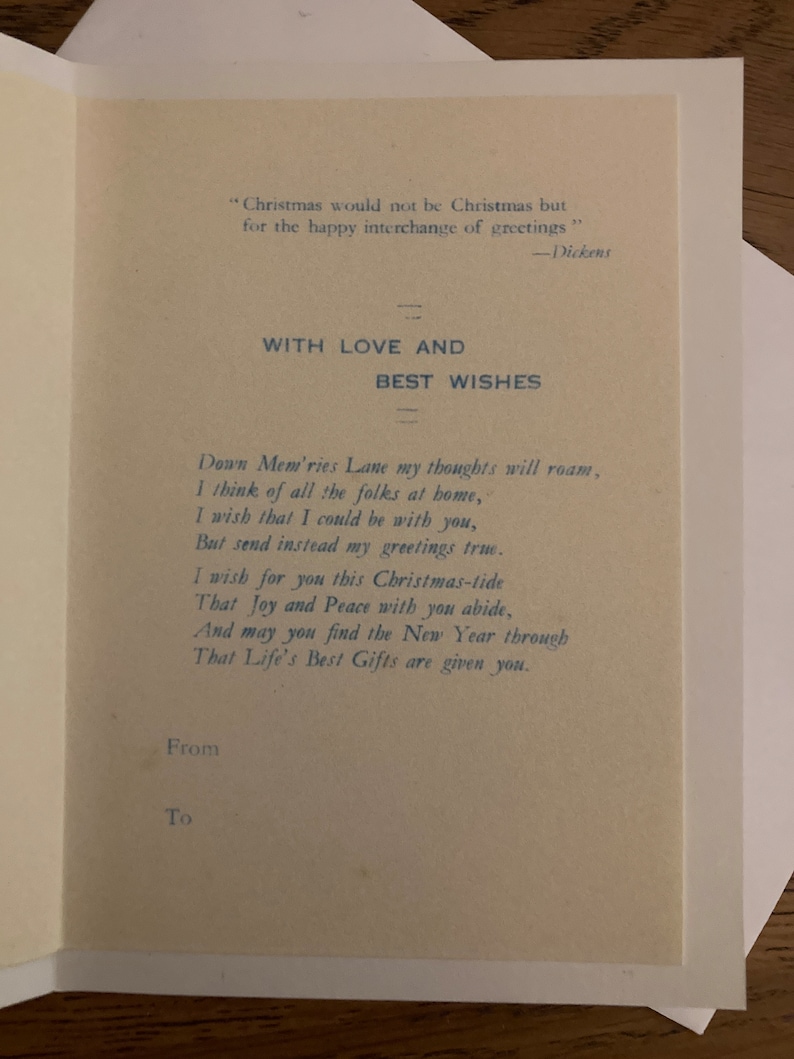 “Christmas would not be Christmas but
for the happy interchange of greetings”
—Dickens
WITH LOVE AND
BEST WISHES
Down Mem'ries Lane my thoughts will roam,
I think of all the folks at home,
I wish that I could be with you,
But send instead my greetings true.
I wish for you this Christmas-tide
That Joy and Peace with you abide,
And may you find the New Year through
That Life's Best Gifts are given you.
From
To